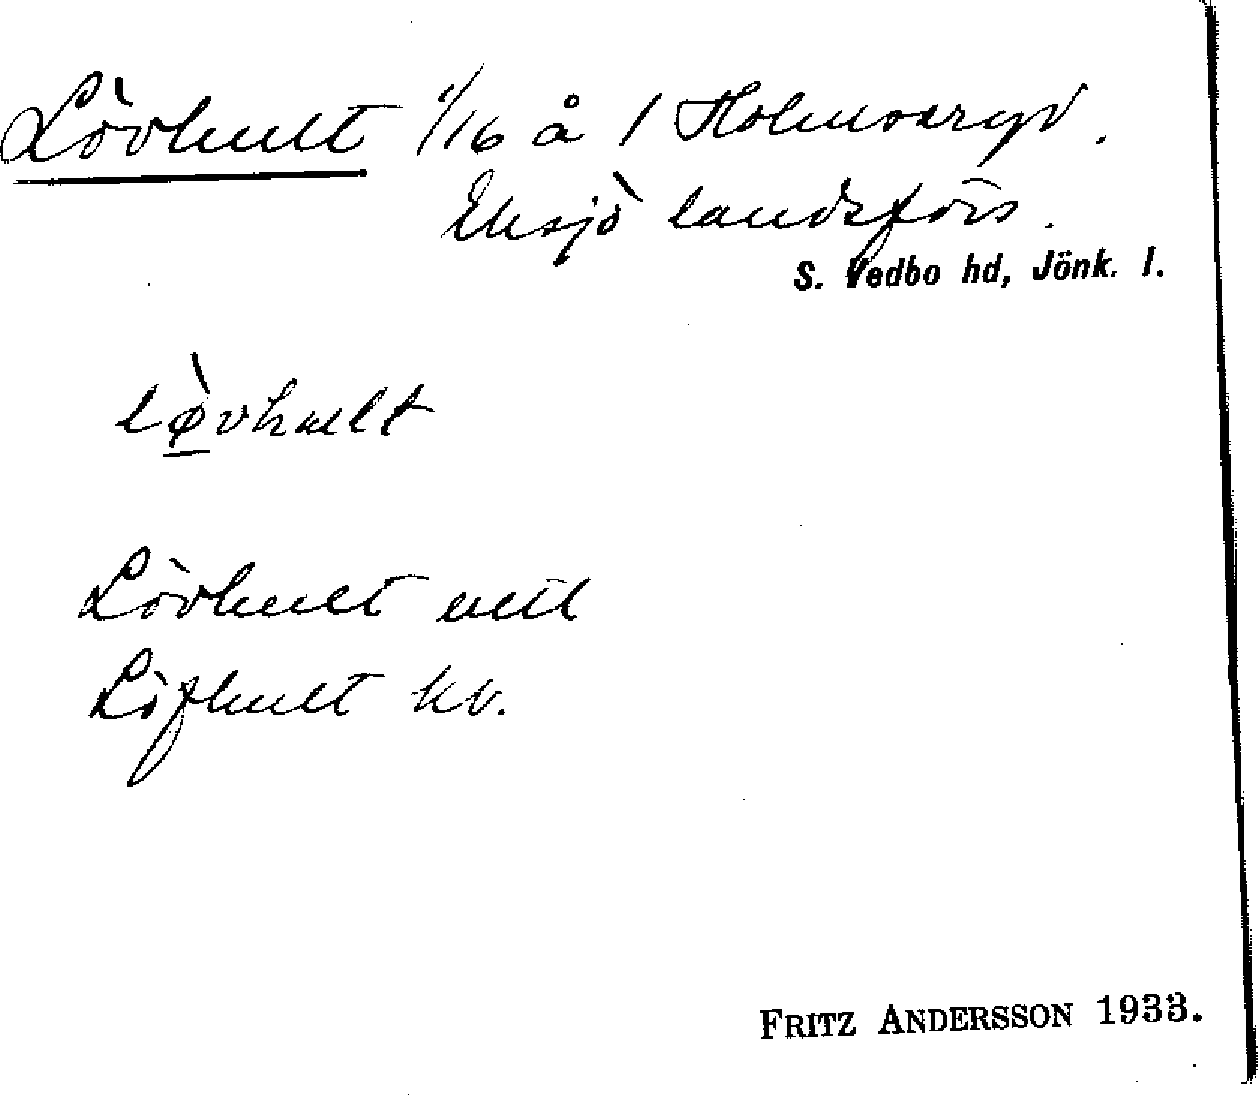 Lövhult 1/16 å 1 Holmsaryd.
Eksjö landsförs.
S. Vedbo hd, Jönk. l.
lø̀vhult
Lövhult
Löfhult kb.
FRITZ ANDERSSON 1933.